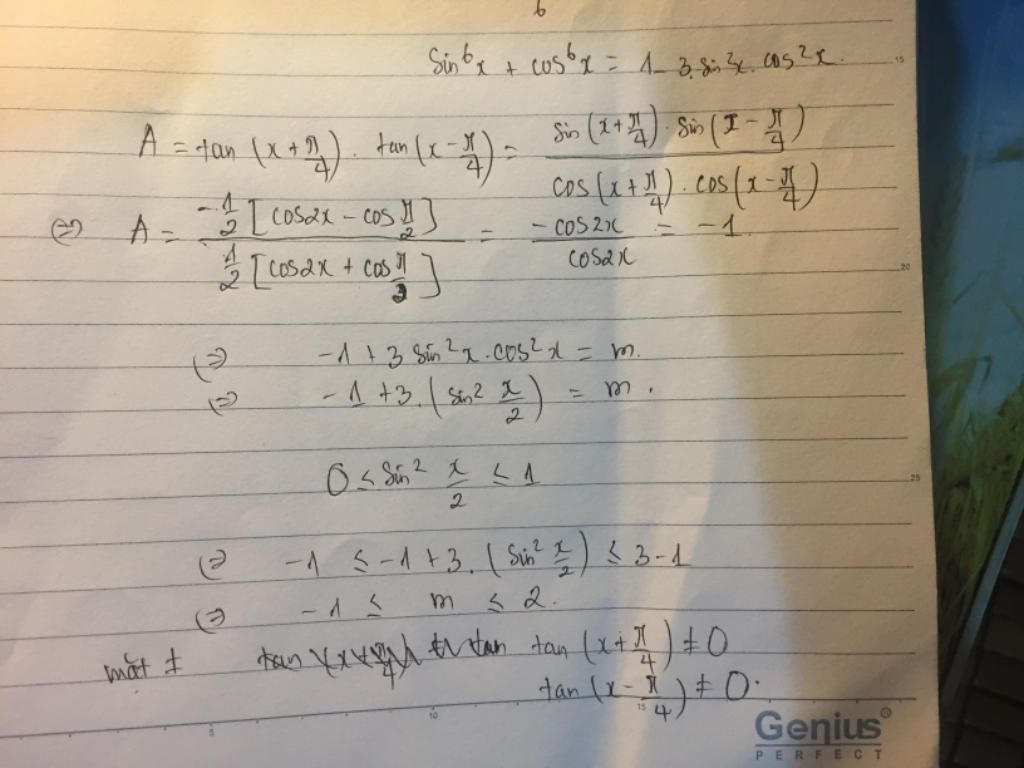 6
sin⁶x + cos⁶x = 1 - 3.sin²x.cos²x.
15
A = tan(x + π/4). tan(x - π/4) = sin(x + π/4).sin(x - π/4) / cos(x + π/4).cos(x - π/4)
⇔ A = -1/2[cos2x - cos π/2] / 1/2[cos2x + cos π/2] = -cos2x / cos2x = -1.
20
⇔ -1 + 3 sin²x.cos²x = m.
⇔ -1 + 3.(sin² x/2) = m.
0 ≤ sin² x/2 ≤ 1
25
⇔ -1 ≤ -1 + 3.(sin² x/2) ≤ 3 - 1
⇔ -1 ≤ m ≤ 2.
mặt ≠ tan(x + π/4) ≠ 0
tan(x - π/4) ≠ 0.
5 10 15
Genius®
PERFECT